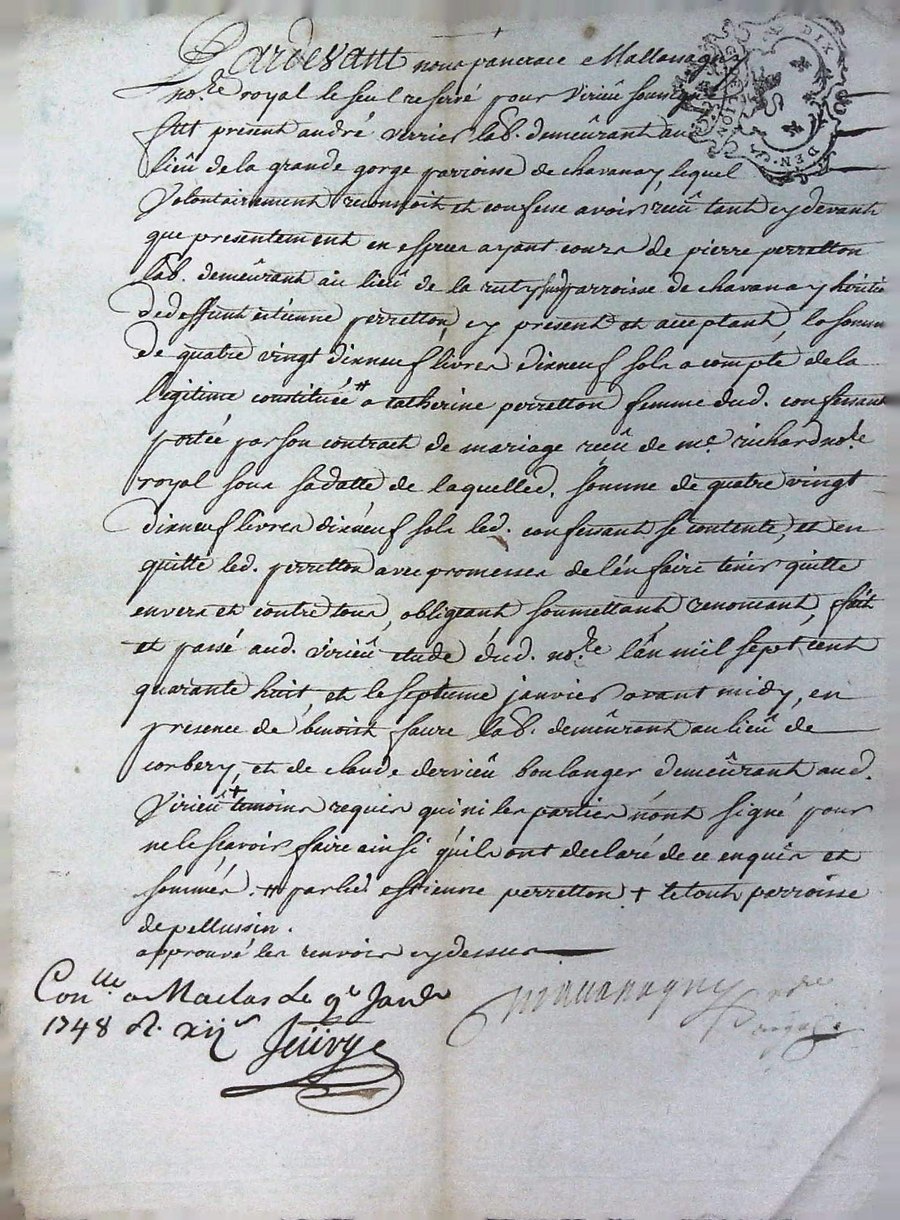 Pardevant nous pancrace Mallassagny
no.re royal le seul reservé pour virieû soub.né
fut présent andré verrier lab. demeûrant au
lieû de la grande gorge parroisse de chavanay, lequel
Volontairement reconnoit et confesse avoir receû tant cy devant
que presentement en espices ayant cours de pierre perretton
lab. demeûrant au lieû de la parroisse de chavanay héritier
de deffunt estienne perretton, cy present et acceptant, la somme
de quatre vingt dixneuf livres dixneuf sols a compte de la
legitime constituée # a catherine perretton femme dud. confessant
portée par son contract de mariage receû de me. richard no.re
royal sous sa datte de laquelled. somme de quatre vingt
dixneuf livres dixneuf sols led. confessant se contente, et en
quitte led. perretton avec promesses de l'en faire tenir quitte
envers et contre tous, obligeant soumettant, renoncant, fait
et passé aud. virieû étude dud. no.re l'an mil sept cent
quarante huit, et le septieme janvier avant midy, en
presence de benoist faure lab. demeûrant au lieû de
corbery, et de claude dervieû boulanger demeûrant aud.
Virieû + temoins requis qui ni les parties n'ont signé pour
ne le scavoir faire ainsi qu'ils ont declaré de ce enquis et
sommés. # par led. estienne perretton + le tout parroisse
de pellussin.
approuvé les renvois cy dessus
Con.lle a Maclas Le 9e Janv.r
1748 R. xij s
DIX
DEN.